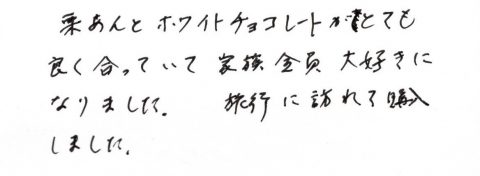 栗あんとホワイトチョコレートがとても
良く合っていて 家族全員 大好きに
なりました。 旅行に訪れて購入
しました。